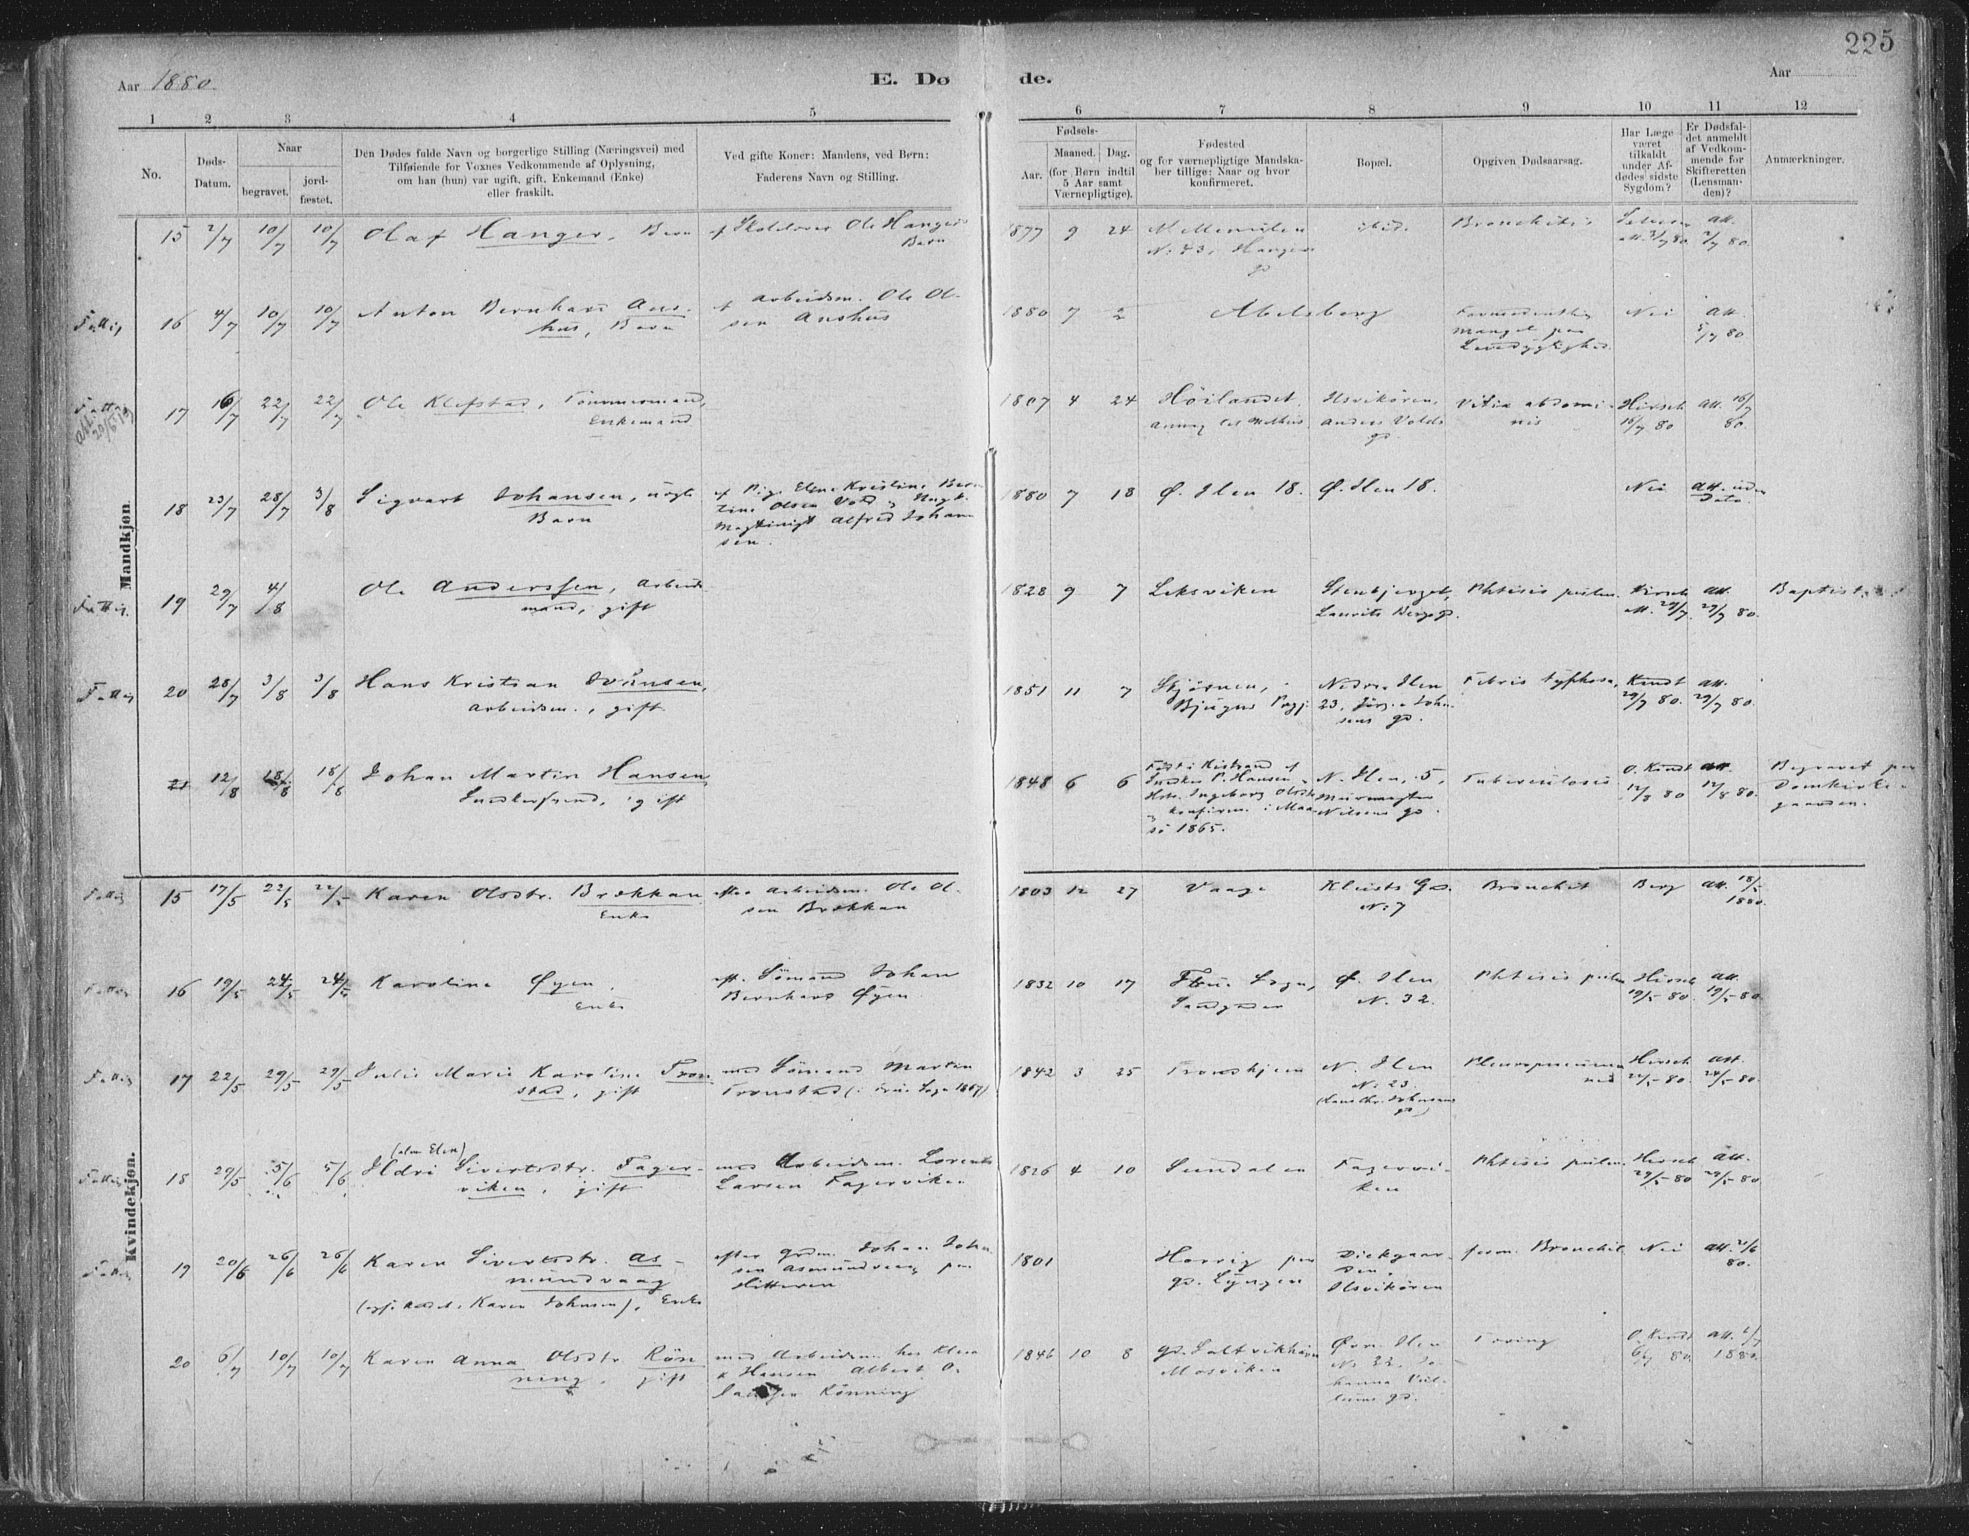 225
Aar 1880.
E. Dø de.
Aar
1 2 3 4 5 6 7 8 9 10 11 12
No.
Døds-Datum.
Naar
begravet.
jord-fæstet.
Den Dødes fulde Navn og borgerlige Stilling (Næringsvei) med
Tilføiende for Voxnes Vedkommende af Oplysning,
om han (hun) var ugift, gift, Enkemand (Enke)
eller fraskilt.
Ved gifte Koner: Mandens, ved Børn:
Faderens Navn og Stilling.
Fødsels-
Aar.
Maaned. Dag.
(for Børn indtil
5 Aar samt
Værnepligtige).
Fødested
og for værnepligtige Mandska-
ber tillige: Naar og hvor
konfirmeret.
Bopæl.
Opgiven Dødsaarsag.
Har Læge
været
tilkaldt
under Af-
dødes sidste
Sygdom?
Er Dødsfal-
det anmeldt
af Vedkom-
mende for
Skifteretten
(Lensman-
den)?
Anmærkninger.
Mandkjøn.
15 2/7 10/7 10/7 Olaf Hanger, Barn
Ole Hangers
Barn
1877 9 24
N. 43, Hangers
gd
ibid. Bronchitis
att.
2/7 80.
Fattig 16 4/7 10/7 10/7 Anton Bernhard Aus-
hus, Barn
af Arbeidsm. Ole Ol-
sen Aushus
1880 7 2 Abelsberg
mangel paa
Levedygtighed.
Nei att.
5/7 80
17 16/7 22/7 22/7 Ole Klefstad, Tømmermand,
Enkemand
1807 4 24 Høilandet,
Ilsvikøren,
Anders Volds
gd
Vitia abdomi-
nis
Hirsch
16/7 80
att. 16/7
80.
18 23/7 28/7 3/8 Sigvart Johansen, uægte
Barn
af Pige Elen Kristine Bern
tine Olsen Vold og Ungk.
Alfred Johan
sen.
1880 7 18 Ø. Ilen 18. Ø. Ilen 18. Nei att. uden
Dato.
Fattig. 19 29/7 4/8 Ole Anderssen, Arbeids
mand, gift
1828 9 7 Leksviken Stenbjerget,
Laurits Bergs gd.
Phtisis pulm. Hirsch
att. 29/7
att.
29/7 80.
Baptist.
Fattig 20 28/7 3/8 3/8 Hans Kristian Svansen,
Arbeidsm., gift
1851 11 7
Bjugns Pgj.
Nedre Ilen
23, Jørg. John
sens gd.
Febris typhosa, Kindt
29/7 80.
att.
29/7 80.
21 12/8 18/8 18/8 Johan Martin Hansen
Snedkersvend, gift
1848 6 6 Født i Kistrand af
Snedker P. Hansen og
Hstr. Ingeborg Olsdt.
og konfirm. i Maa-
sø 1865.
N. Ilen, 5,
Murmester
Nilsens gd.
Tuberculosis O. Kindt
12/8 80
att.
12/8 80.
Begravet paa
Domkirke-
gaarden.
Kvindekjøn.
Fattig 15 17/5 22/5 22/5 Karen Olsdtr. Brækkan
Enke
efter Arbeidsm. Ole Ol-
sen Brækkan
1803 12 27 Vaage Kleists Gd.
N: 7
Bronchit Berg att. 18/5
1880.
Fattig 16 19/5 24/5 24/5 Karoline Øyen,
Enke
eft. Sømand Johan
Bernhard Øyen
1832 10 17 Frue Sogn,
Ø. Ilen
N. 32.
Phtisis pulm Hirsch
19/5 80.
att.
19/5 80.
Fattig 17 22/5 29/5 29/5 Julie Marie Karoline Tron-
stad, gift
med Sømand Martin
Tronstad (i Frue Sogn 1867)
1842 3 25 Tronhjem N. Ilen
N: 23
Pleuropneumo
ni
Hirsch
22/5 80.
att.
24/5 80.
Fattig 18 29/5 5/6 5/6 (alm Elen)
Ildri Sivertsdtr. Fager-
viken, gift
med Arbeidsm. Lorents
Larsen Fagerviken
1826 4 10 Sundalen Fagervi-
ken
Phtisis pulm. Hirsch
29/5 80
att.
29/5 80
Fattig 19 20/6 26/6 26/6 Karen Sivertsdtr. As-
mundvaag
Karen Johnsen), Enke
efter Grdm. Johan John
sen Asmundvaag paa
Hitteren
1801
gd. Lyngen
Digegaar-
den,
Ilsvikøren
Bronchit Nei att. 21/6
80.
20 6/7 10/7 10/7 Karen Anna Olsdtr Røn
ning, gift
med Arbeidsm. hos Klin
g Hansen Albert O-
Rønning
1846 10 8 gd. Saltvikhavn
Mosviken
Øvre Ilen
N. 33. Jo-
hanna
gd.
Tæring O. Kindt
6/7 80.
att. 6/7
1880.